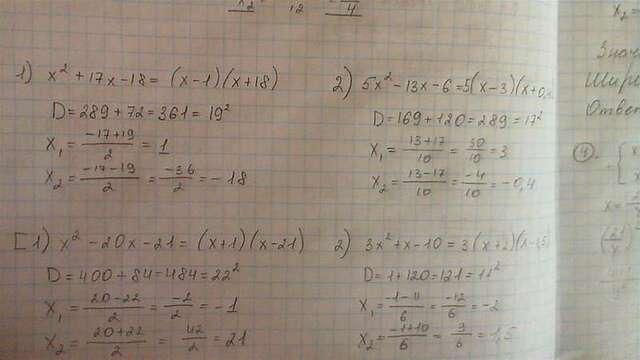 1) x² + 17x - 18 = (x-1)(x+18)
D = 289 + 72 = 361 = 19²
x₁ = (-17+19)/2 = 1
x₂ = (-17-19)/2 = (-36)/2 = -18
2) 5x² - 13x - 6 = 5(x-3)(x+0,
D = 169 + 120 = 289 = 17²
x₁ = (13+17)/10 = 30/10 = 3
x₂ = (13-17)/10 = (-4)/10 = -0,4
[1) x² - 20x - 21 = (x+1)(x-21)
D = 400 + 84 = 484 = 22²
x₁ = (20-22)/2 = (-2)/2 = -1
x₂ = (20+22)/2 = 42/2 = 21
2) 3x² + x - 10 = 3(x+2)(x-1,5)
D = 1 + 120 = 121 = 11²
x₁ = (-1-11)/6 = (-12)/6 = -2
x₂ = (-1+10)/6 = 9/6 = 1,5
x₂ =
Значе
Шири
Ответ